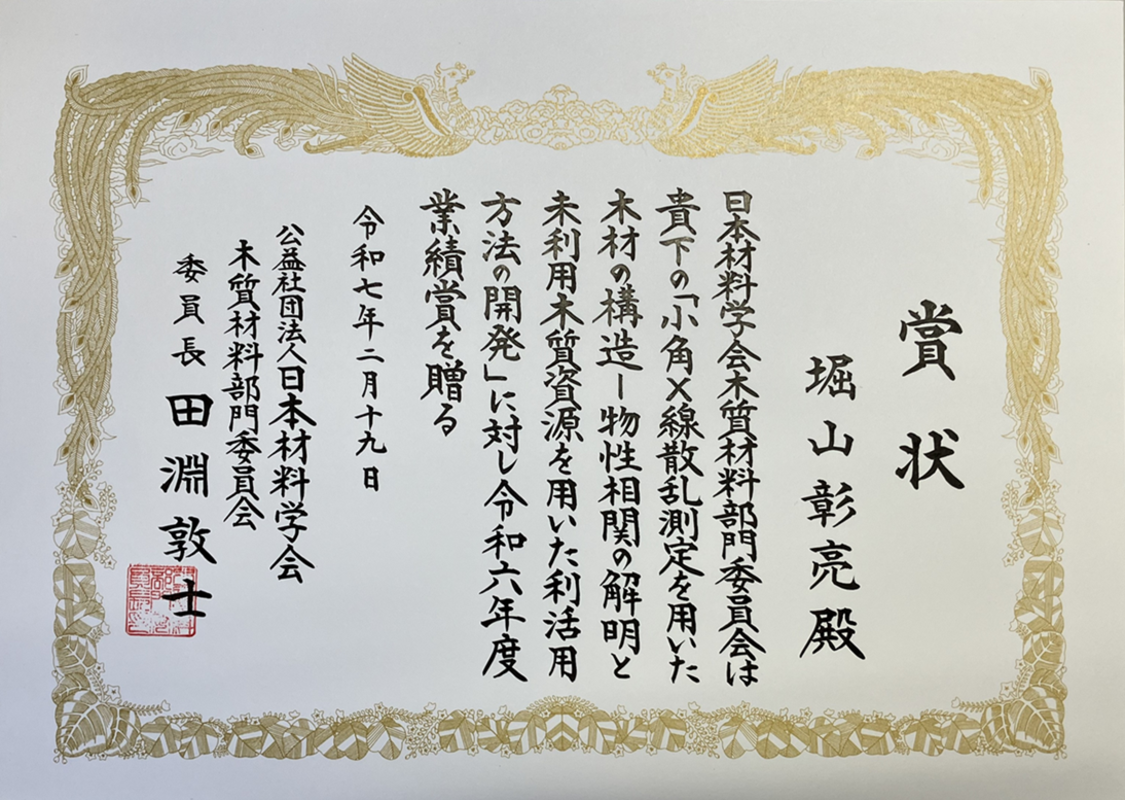 賞状
堀山彰亮殿
日本材料学会木質材料部門委員会は
貴下の「小角X線散乱測定を用いた
木材の構造ー物性相関の解明と
未利用木質資源を用いた利活用
方法の開発」に対し令和六年度
業績賞を贈る
令和七年二月十九日
公益社団法人日本材料学会
木質材料部門委員会
委員長 田淵敦士